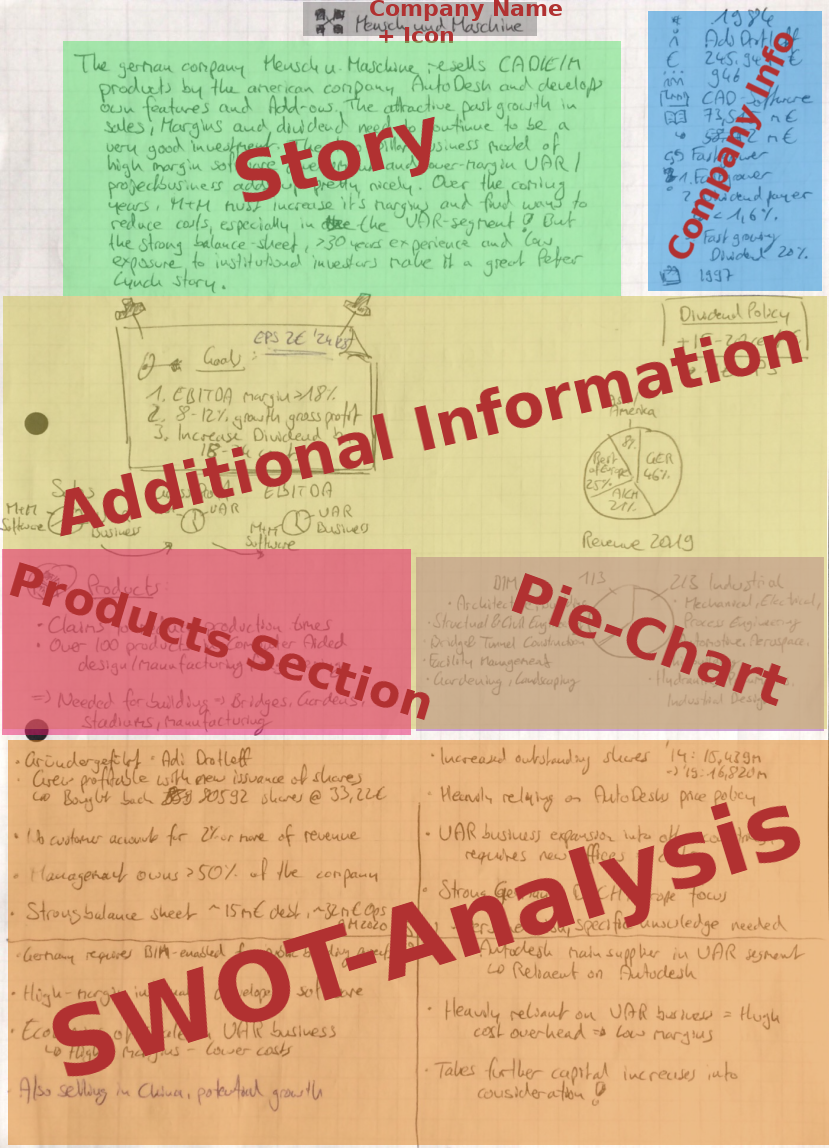 Company Name
+ Icon
Mensch und Maschine
The german company Mensch u. Maschine resells CAD/E/M
products by the american company AutoDesk and develops
own features and Add-ons. The attractive past growth in
sales, Margins and dividend need to continue to be a
very good investment. The business model of
high margin software and lower-margin VAR/
projectbusiness adds up pretty nicely. Over the coming
years, M+M must increase it's margins and find ways to
reduce costs, especially in the VAR-segment! But
the strong balance-sheet, >30 years experience and low
exposure to institutional investors make it a great Peter
Lynch story.
Story
1984
Adi Drotleff
€ 245.94 €
946
CAD-Software
73,5 m€
m€
Fast grower
1. Fast grower
2. Dividend payer
< 1,6%
Fast growing
Dividend 20%
1997
Company Info
EPS 2€ '24 est
Goals:
1. EBITDA margin >18%
2. 8-12% growth gross profit
3. Increase Dividend by
Dividend Policy
+15-20 cents
Additional Information
Sales
EBITDA
M+M
Software
Business
VAR
M+M
Software
VAR
Business
Amerika
8%
GER
46%
Rest
of Europe
25%
A/CH
21%
Revenue 2019
Products:
• Claims production times
• Over 100 products Computer Aided
design/Manufacturing
=> Needed for building -> Bridges, Gardens,
Stadiums, Manufacturing
Products Section
BIM 1/3
• Architecture
• Structural & Civil Engineering
• Bridge & Tunnel Construction
• Facility Management
• Gardening, Landscaping
2/3 Industrial
• Mechanical, Electrical,
Process Engineering
• Automotive, Aerospace,
• Hydraulic
Industrial Design
Pie-Chart
• Gründergeführt - Adi Drotleff
• Grew profitable with new issuance of shares
↳ Bought back 80592 shares @ 33,22€
• No customer accounts for 2% or more of revenue
• Management owns >50% of the company
• Strong balance sheet ~15m€ debt, ~32m€ Ops
9M2020
• Increased outstanding shares '14: 15,439m
-> '19: 16,820m
• Heavily relying on AutoDesks price policy
• VAR business expansion into other countries
requires new offices
• Strong German, DACH, Europe focus
• specific knowledge needed
• Germany requires BIM-enabled for public building
• High-margin in developed software
• Economies of scale in VAR business
↳ High margins - lower costs
• Also selling in China, potential growth
• Autodesk main supplier in VAR segment
↳ Reliaent on Autodesk
• Heavily reliant on VAR business = High
cost overhead => low margins
• Takes further capital increases into
consideration!
SWOT-Analysis